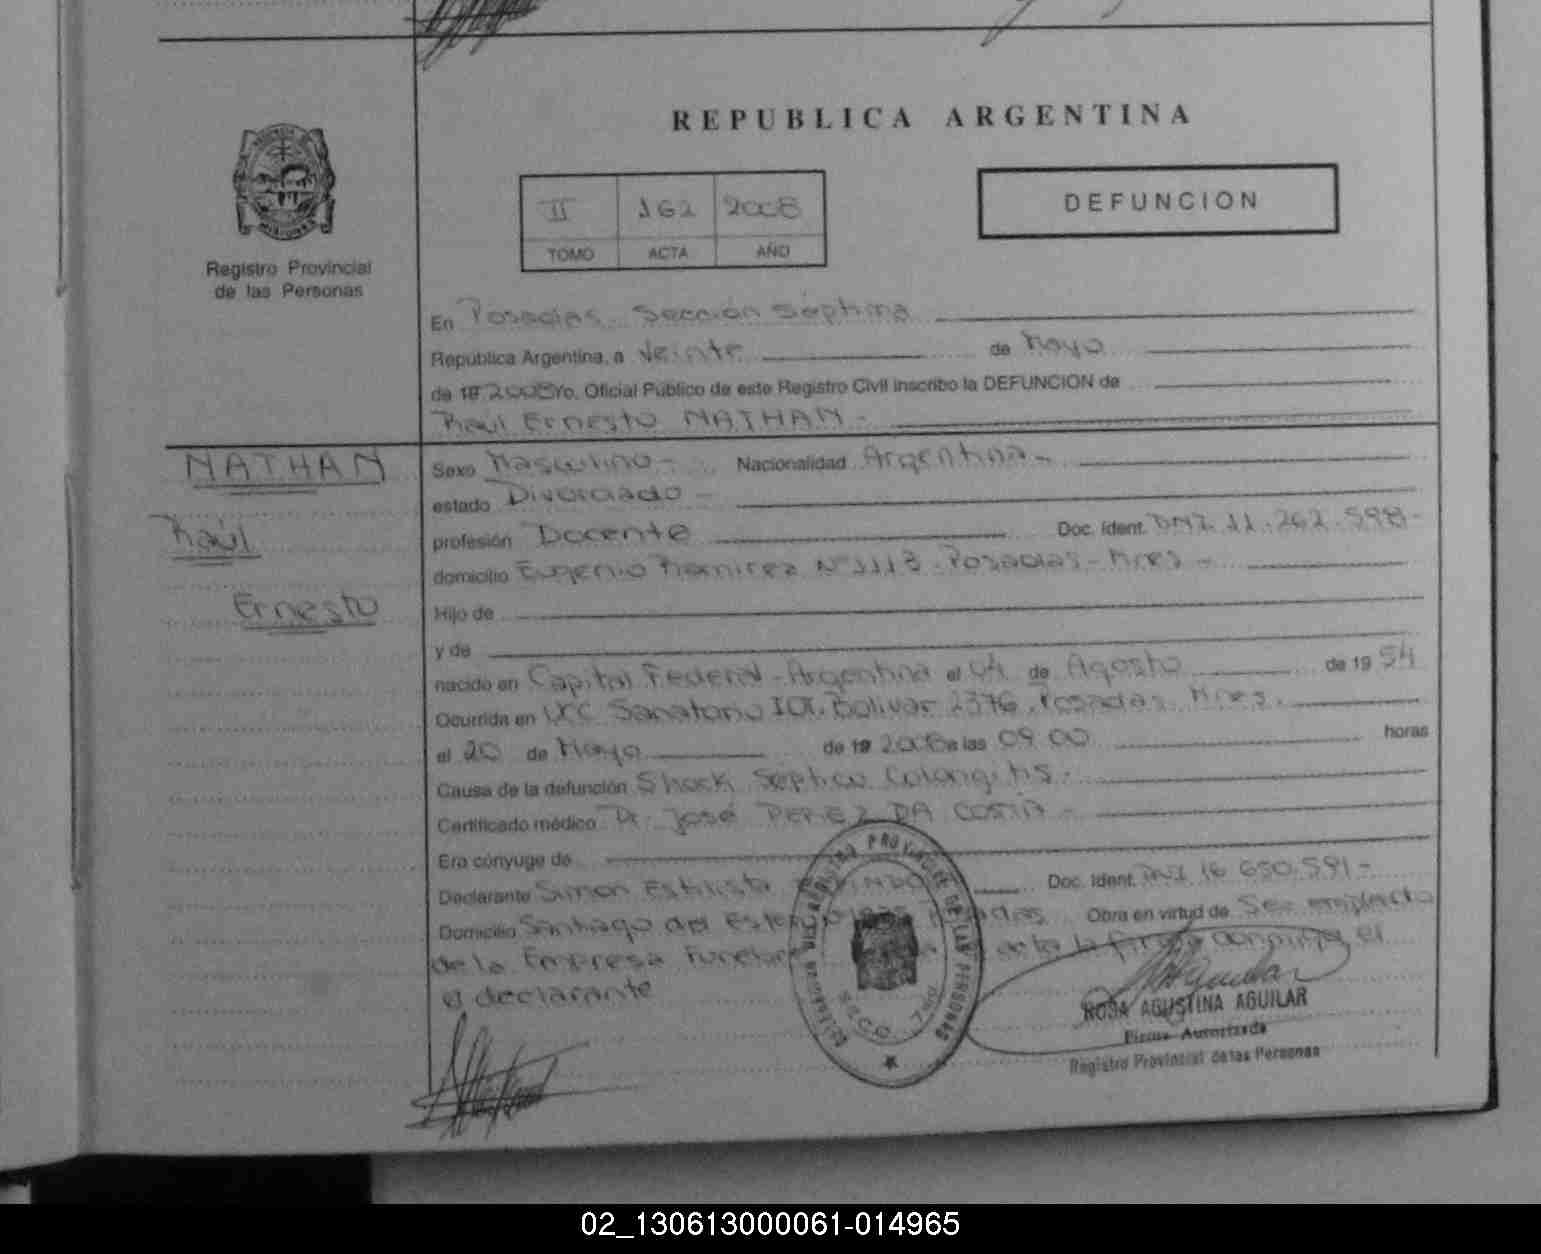 REPUBLICA ARGENTINA
II 162 2008
DEFUNCION
TOMO ACTA AÑO
Registro Provincial
de las Personas
En Posadas Sección Séptima
República Argentina, a Veinte de Mayo
de 19 2008 Yo, Oficial Público de este Registro Civil inscribo la DEFUNCION de
Raúl Ernesto NATHAN.-
NATHAN
Raúl
Ernesto
Sexo Masculino.- Nacionalidad Argentina.-
estado Divorciado.-
profesión Docente Doc. Ident. DNI. 11.262.598-
domicilio Eugenio Ramirez Nº 1113. Posadas - Mnes.-
Hijo de
y de
nacido en Capital Federal - Argentina el 04 de Agosto de 19 54
Ocurrida en Sanatorio IOT. Bolivar 2376. Posadas. Mnes.
el 20 de Mayo de 19 2008 a las 09.00 horas
Causa de la defunción Shock Séptico Colangitis.-
Certificado médico Dr. José PEREZ DA COSTA.-
Era cónyuge de
Declarante Simon Doc. Ident. DNI 16.650.591-
Domicilio Santiago del Obra en virtud de Ser empleado
de la Empresa el
el declarante
DE LAS PERSONAS
SECC. 7ma
ROSA AGUSTINA AGUILAR
Firma Autorizada
Registro Provincial de las Personas
02_130613000061-014965